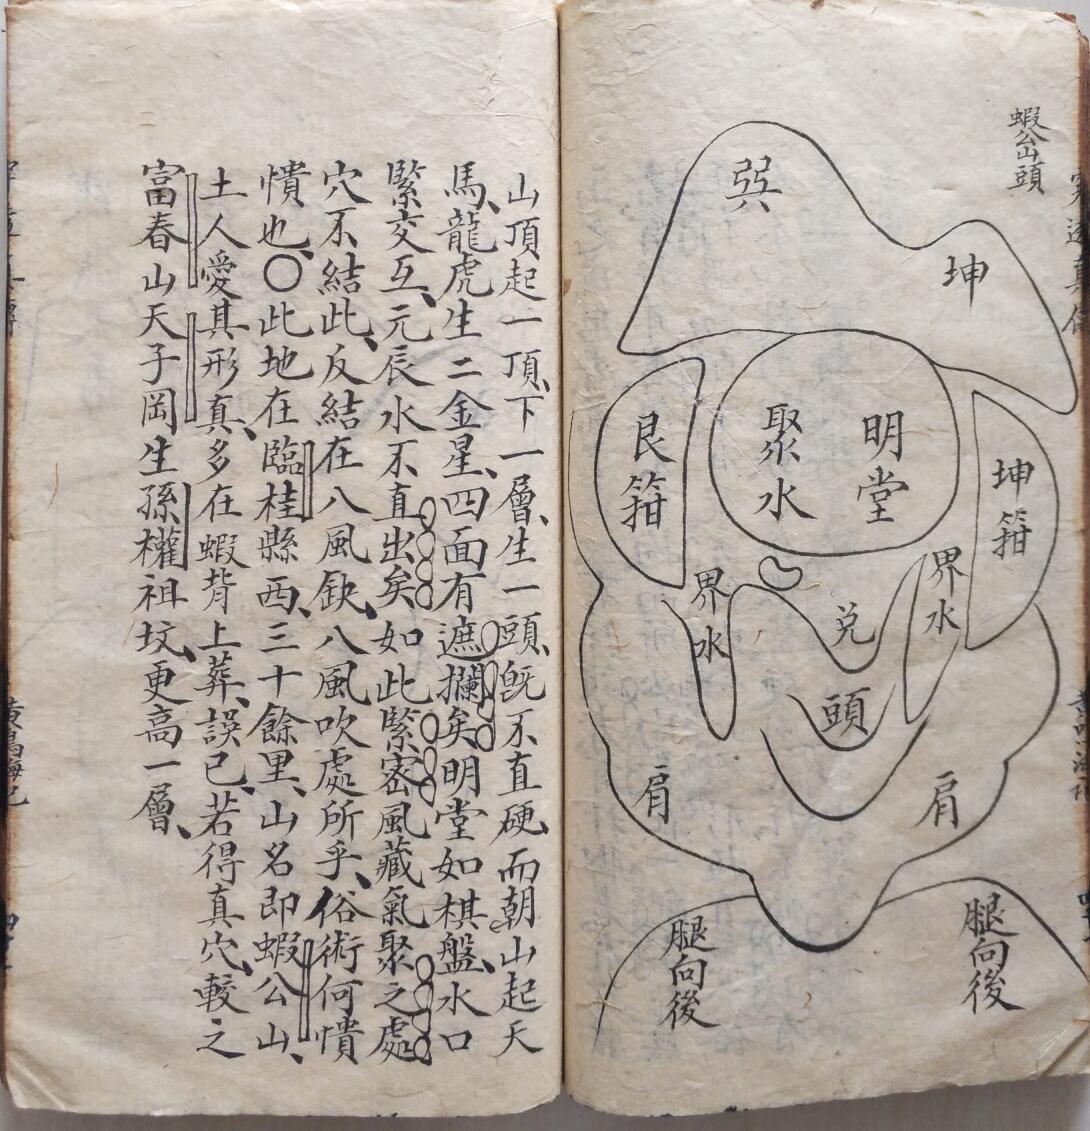 蝦公山頭
巽
坤
明堂
聚水
艮箝
坤箝
界水
界水
兌
頭
肩
肩
腿向後
腿向後
山頂起一頂、下一層、生一頭、旣不直硬、而朝山起天
馬、龍虎生二金星、四面有遮攔矣、明堂如棋盤、水口
緊交互、元辰水不直出矣、如此緊密風藏氣聚之處
穴不結此、反結在八風缺、八風吹處所乎、俗術何憒
憒也、〇此地在臨桂縣西、三十餘里、山名即蝦公山、
土人愛其形真、多在蝦背上葬、誤已、若得真穴、較之
富春山天子岡生孫權祖坟、更高一層、